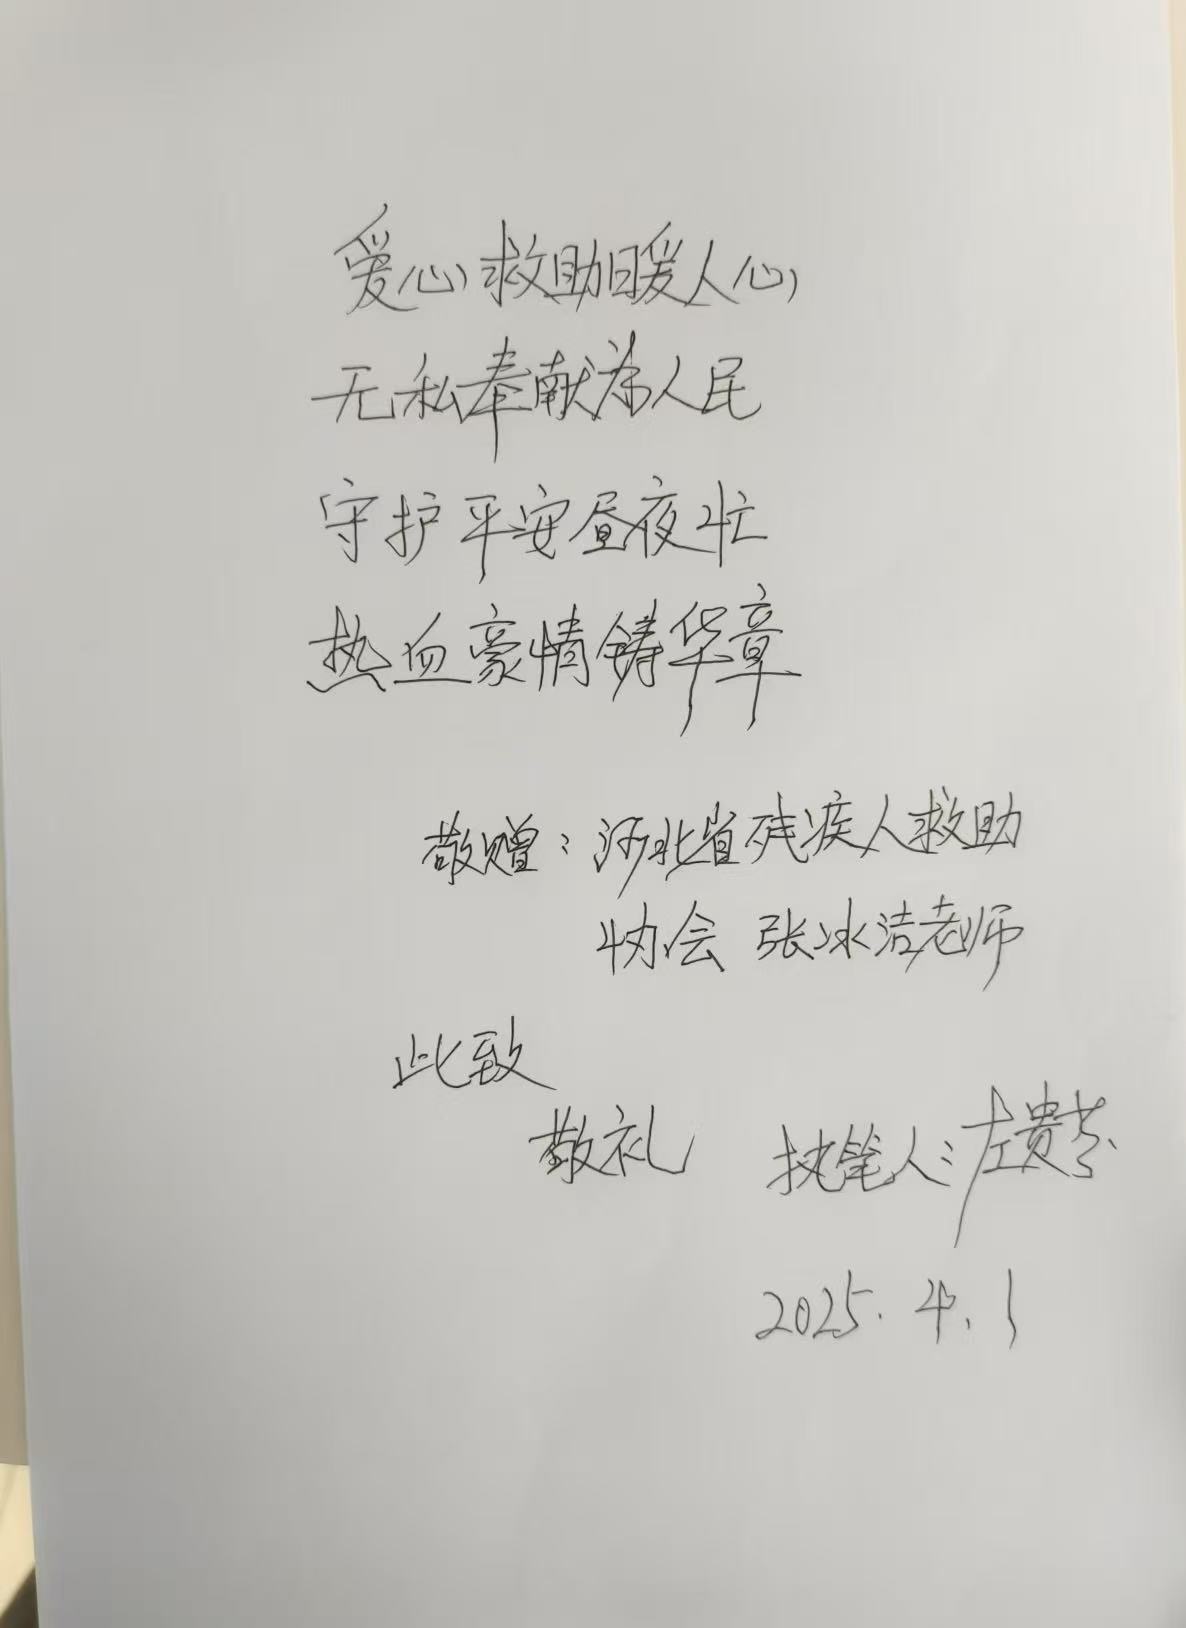 爱心救助暖人心
无私奉献为人民
守护平安昼夜忙
热血豪情铸华章
敬赠：河北省残疾人救助
协会 张冰洁老师
此致
敬礼
执笔人：左贵芬
2025.4.1